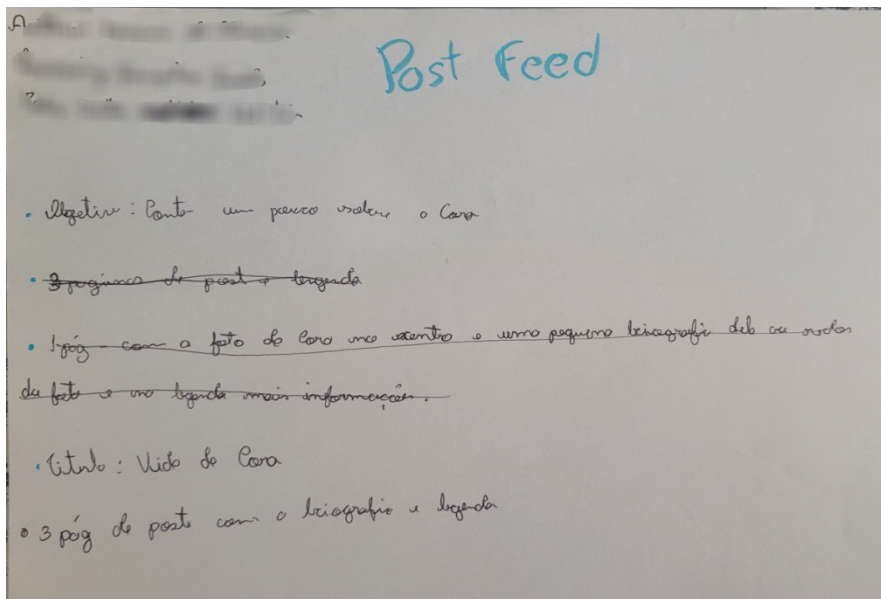 Post Feed
• Objetivo: Conta um pouco sobre o Cara
• 3 páginas de post e legenda
• 1 pág com a foto do Cara no centro e uma pequena biografia dele ao redor
da foto e na legenda mais informações.
• Título: Vida do Cara
• 3 pág de posts com a biografia e legenda